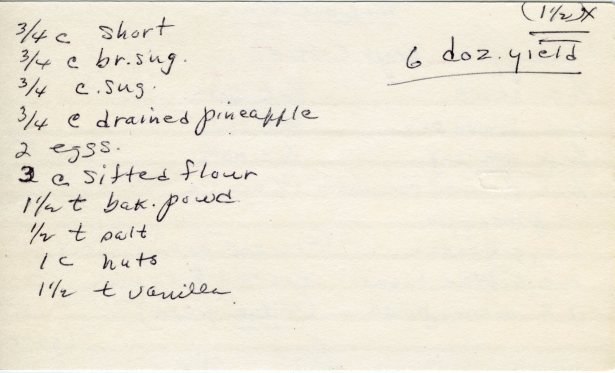 (1 1/2)X
6 doz. yield
3/4 c short
3/4 c br. sug.
3/4 c. sug.
3/4 c drained pineapple
2 eggs.
3 c sifted flour
1 1/2 t bak. powd.
1/2 t salt
1 c nuts
1 1/2 t vanilla